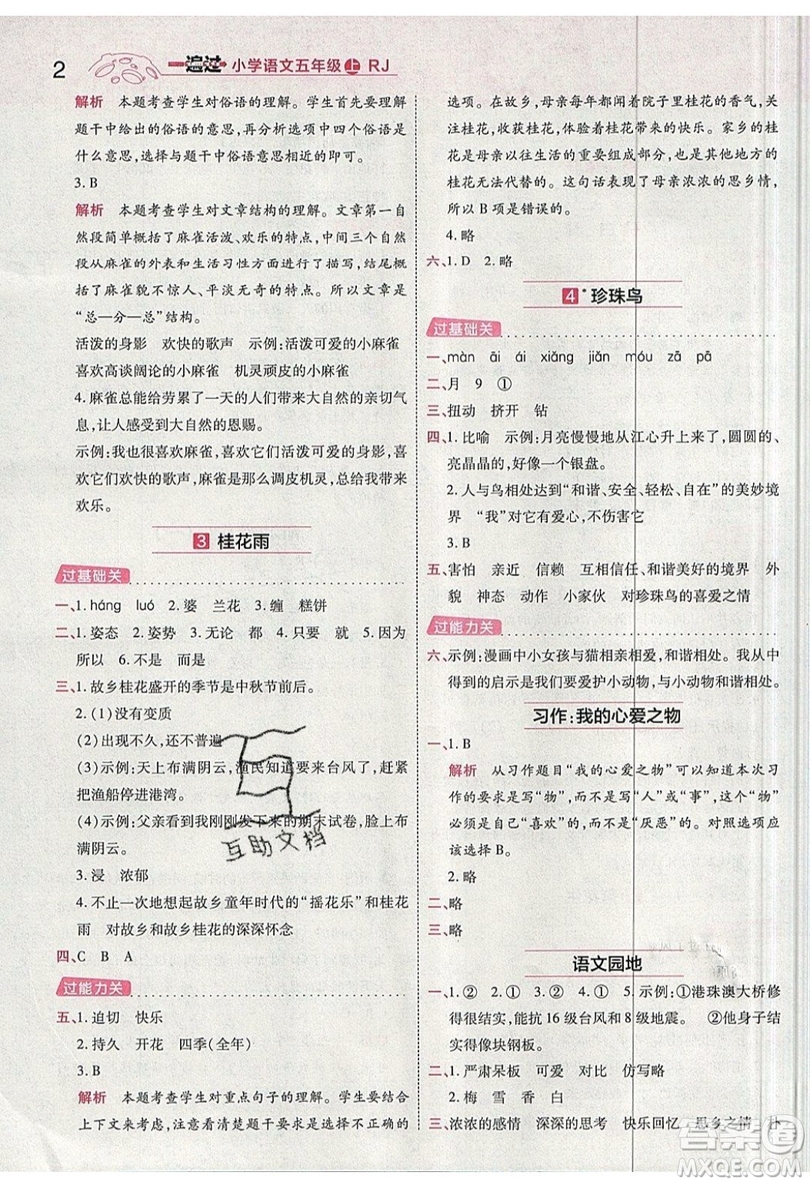 2 一遍过 小学语文五年级上 RJ
解析 本题考查学生对俗语的理解。学生首先要理解
题干中给出的俗语的意思,再分析选项中四个俗语是
什么意思,选择与题干中俗语意思相近的即可。
3. B
解析 本题考查学生对文章结构的理解。文章第一自然
段简单概括了麻雀活泼、欢乐的特点,中间三个自然段
从麻雀的外表和生活习性方面进行了描写,最后总结麻
雀虽貌不惊人、平淡无奇的特点。所以本篇文章是
“总—分—总”结构。
活泼的身影 欢快的歌声 示例:活泼可爱的小麻雀
喜欢高谈阔论的小麻雀 机灵顽皮的小麻雀
4. 麻雀总能给劳累了一天的人们带来大自然的亲切气
息,让人感受到大自然的恩赐。
示例:我也很喜欢麻雀,喜欢它们活泼可爱的身影,喜
欢它们欢快的歌声,麻雀总是那么调皮机灵,给人带来
欢乐。
3 桂花雨
过基础关
一、1. háng luó 2. 婆 兰花 3. 缠 糕饼
二、1. 姿态 2. 姿势 3. 无论 都 4. 只要 就 5. 因为
所以 6. 不是 而是
三、1. 故乡桂花盛开的季节是中秋节前后。
2. (1)没有变质
(2)出现不久,还不普遍
(3)示例:天上布满阴云,渔民知道要来台风了,赶紧
把渔船停进港湾。
(4)示例:父亲看到我刚刚发下来的期末试卷,脸上布
满阴云。
3. 浸 浓郁
4. 不止一次地想起故乡童年时代的“摇花乐”和桂花
雨 对故乡和故乡桂花的深深怀念
四、C B A
过能力关
五、1. 迫切 快乐
2. 持久 开花 四季(全年)
3. B
解析 本题考查学生对重点句子的理解。学生要结合
上下文来考虑,注意看清楚题干要求选择的是错误的
选项。在故乡,母亲每年都闻着院子里桂花的香气,关
注桂花,收获桂花,体验桂花带来的快乐。家乡的桂
花是母亲生活的重要组成部分,是其他地方的
桂花无法代替的。这句话表现了母亲浓浓的思乡情。
所以 B 项是错误的。
4. 略
六、1. D 2. 略
4* 珍珠鸟
过基础关
一、màn āi ái xiǎng jiǎn móu zā pā
二、月 9 ①
三、扭动 挤开 钻
四、1. 比喻 示例:月亮慢慢地从江心升上来了,圆圆的、
亮晶晶的,好像一个银盘。
2. 人与鸟相处达到“和谐、安全、轻松、自在”的美妙境
界 “我”对它有爱心,不伤害它
3. B
五、害怕 亲近 信赖 互相信任、和谐美好的境界 外
貌 神态 动作 小家伙 对珍珠鸟的喜爱之情
过能力关
六、示例:漫画中小女孩与猫相亲相爱,和谐相处。我从中
得到的启示是我们要爱护小动物,与小动物和谐相处。
习作:我的心爱之物
一、1. B
解析 从习作题目“我的心爱之物”可以知道本次习
作的要求是写“物”,而不是写“人”或“事”,这个“物”
必须是自己“喜欢”的,而不是“厌恶”的。对照要求应
该选择 B。
2. 略
二、略
三、略
语文园地
一、1. ② 2. ② 3. ① 4. ① 5. 示例:①港珠澳大桥修
得很结实,能抗 16 级台风和 8 级地震。 ②他身子结
实得像块钢板。
二、1. 严肃呆板 轻松 可爱 对比 仿写略
2. 梅 雪 香 白
三、浓浓的感情 深深的思考 快乐回忆 思乡之情 扑
互助文档
答案圈
MXQE.COM